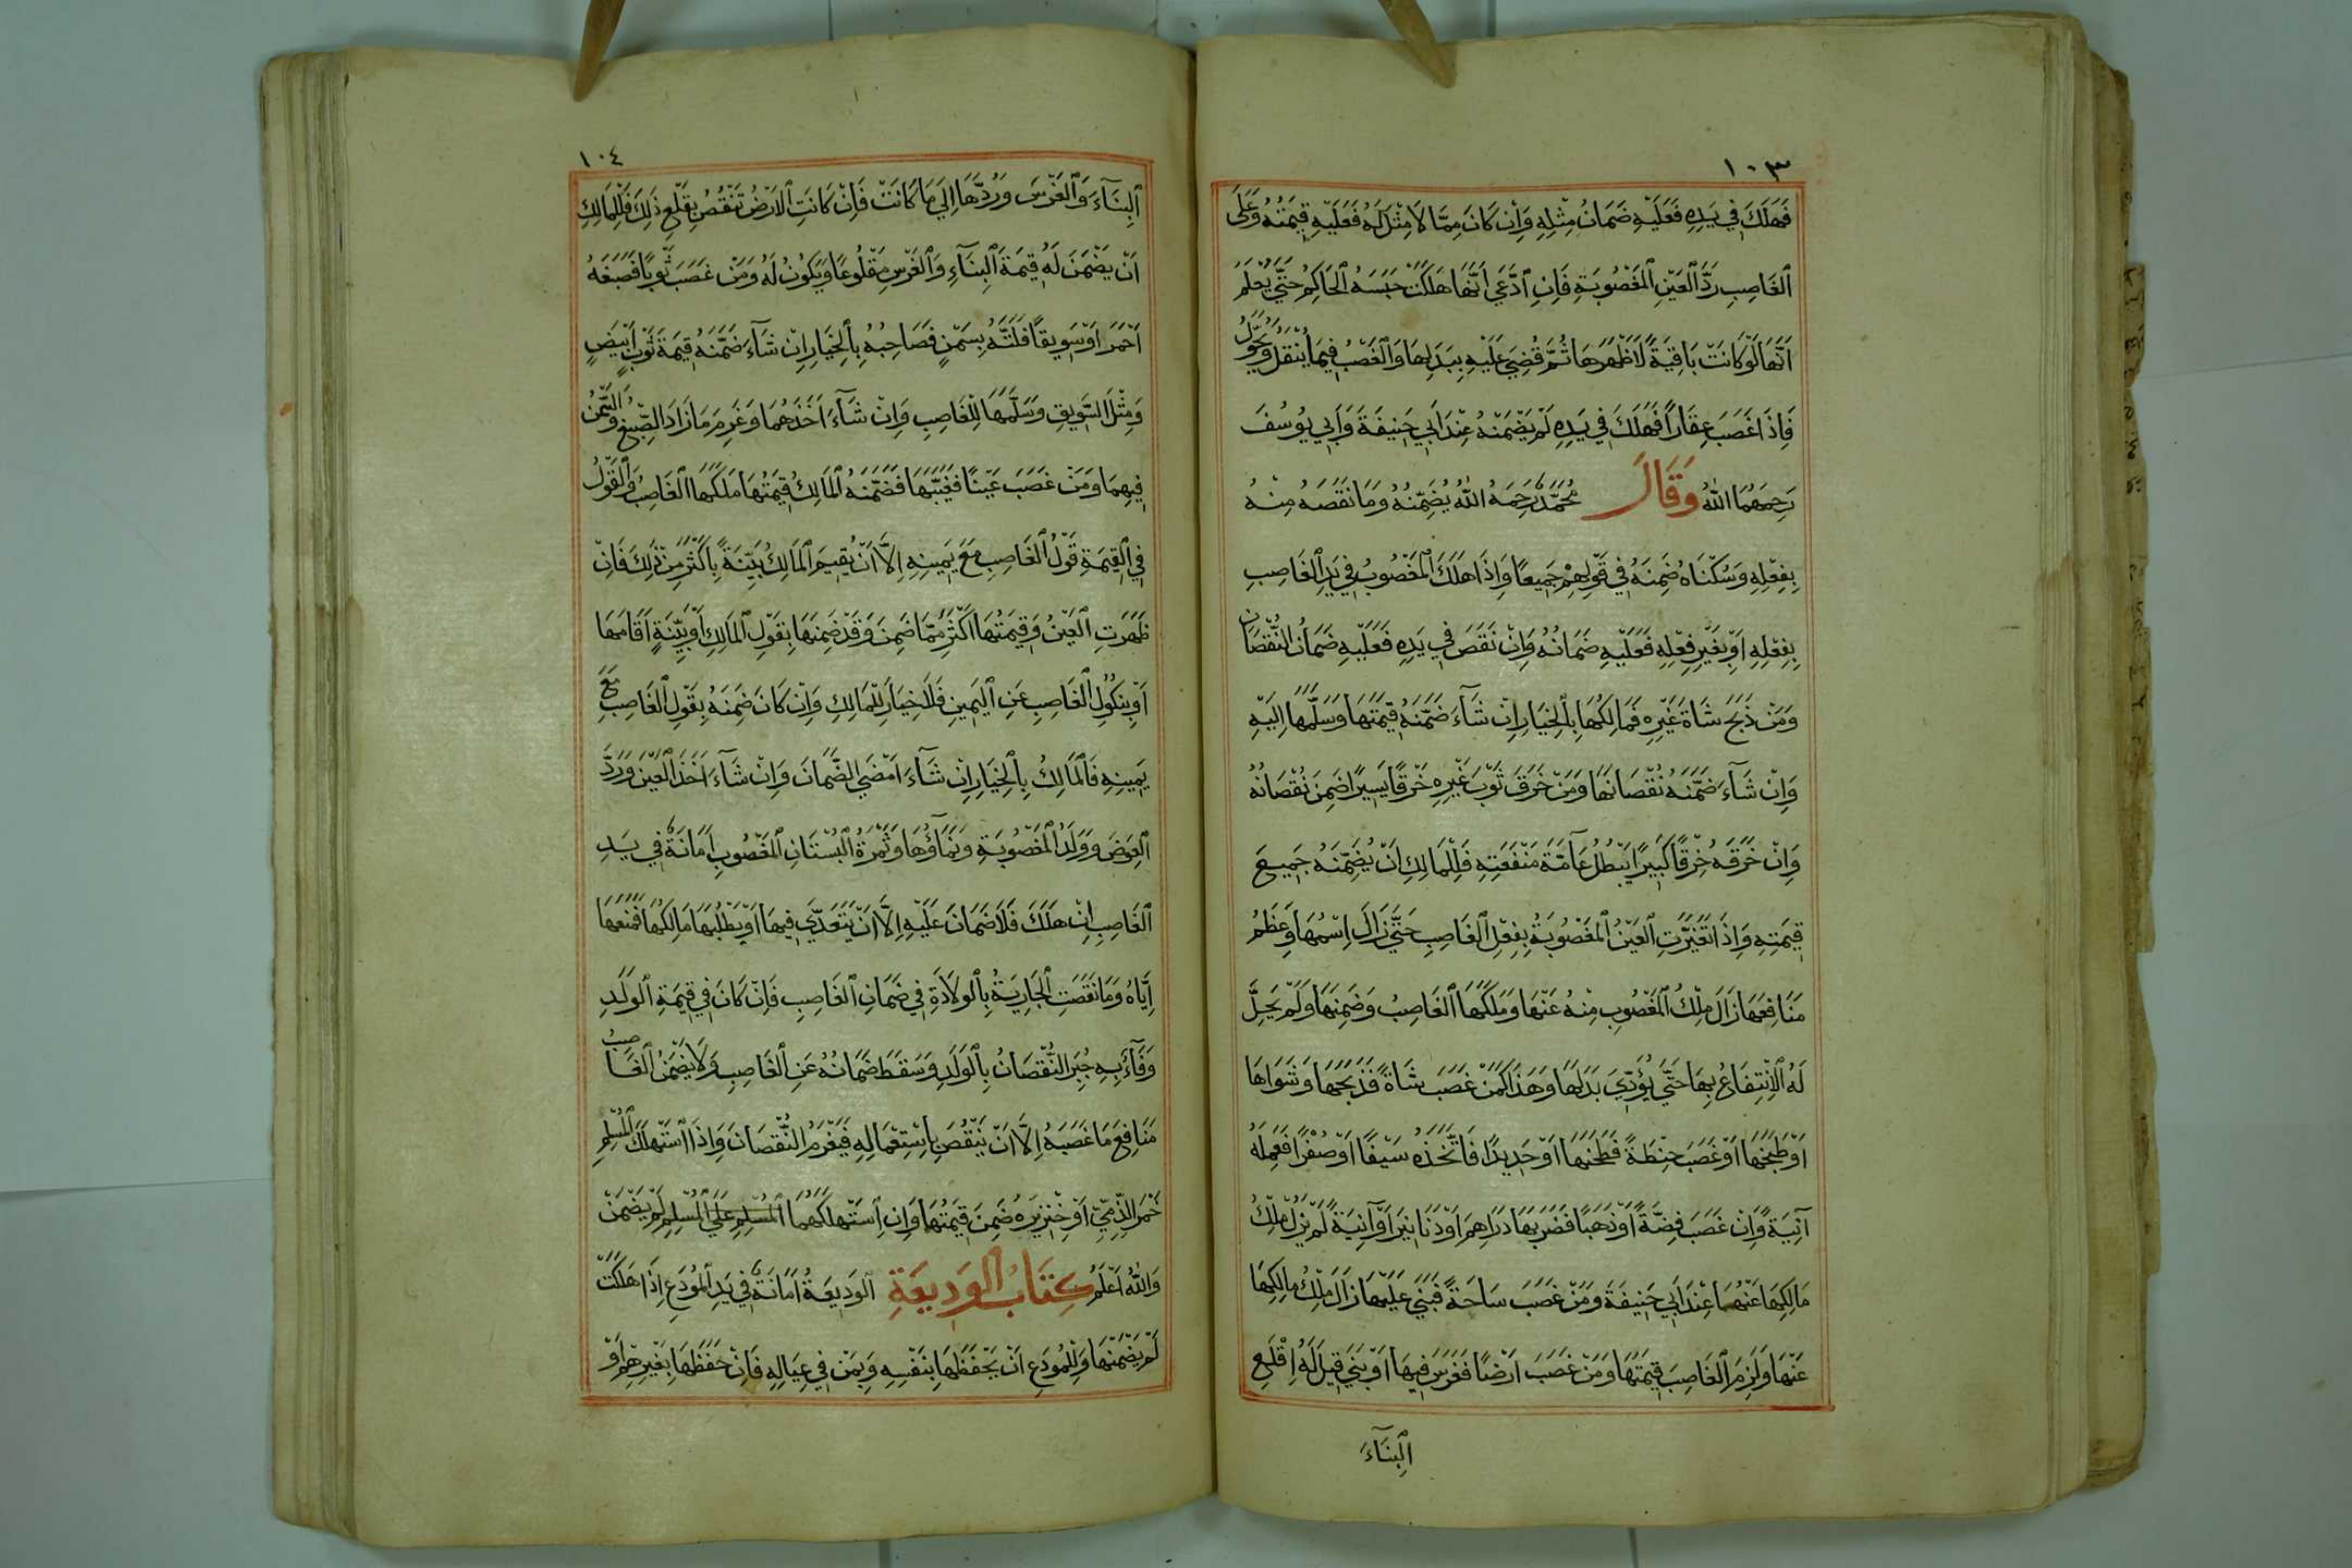 ١٠٣
فَهَلَكَ فِي يَدِهِ فَعَلَيْهِ ضَمَانُ مِثْلِهِ وَاِنْ كَانَ مِمَّا لَا مِثْلَ لَهُ فَعَلَيْهِ قِيمَتُهُ وَعَلَى
الْغَاصِبِ رَدُّ الْعَيْنِ الْمَغْصُوبَةِ فَاِنِ ادَّعَى اَنَّهَا هَلَكَتْ حَبَسَهُ الْحَاكِمُ حَتَّى يُعْلَمَ
اَنَّهَا لَوْ كَانَتْ بَاقِيَةً لَاَظْهَرَهَا ثُمَّ قُضِيَ عَلَيْهِ بِبَدَلِهَا وَالْغَصْبُ فِيمَا يُنْقَلُ وَيُحَوَّلُ
فَاِذَا غَصَبَ عِقَارًا فَهَلَكَ فِي يَدِهِ لَمْ يَضْمَنْهُ عِنْدَ اَبِي حَنِيفَةَ وَاَبِي يُوسُفَ
رَحِمَهُمَا اللهُ وَقَالَ مُحَمَّدٌ رَحِمَهُ اللهُ يُضَمِّنُهُ وَمَا نَقَصَهُ مِنْهُ
بِفِعْلِهِ وَسُكْنَاهُ ضَمِنَهُ فِي قَوْلِهِمْ جَمِيعًا وَاِذَا هَلَكَ الْمَغْصُوبُ فِي يَدِ الْغَاصِبِ
بِفِعْلِهِ اَوْ بِغَيْرِ فِعْلِهِ فَعَلَيْهِ ضَمَانُهُ وَاِنْ نَقَصَ فِي يَدِهِ فَعَلَيْهِ ضَمَانُ النُّقْصَانِ
وَمَنْ ذَبَحَ شَاةَ غَيْرِهِ فَمَالِكُهَا بِالْخِيَارِ اِنْ شَآءَ ضَمَّنَهُ قِيمَتَهَا وَسَلَّمَهَا اِلَيْهِ
وَاِنْ شَآءَ ضَمَّنَهُ نُقْصَانَهَا وَمَنْ خَرَقَ ثَوْبَ غَيْرِهِ خَرْقًا يَسِيرًا ضَمِنَ نُقْصَانَهُ
وَاِنْ خَرَقَهُ خَرْقًا كَبِيرًا يُبْطِلُ عَآمَّةَ مَنْفَعَتِهِ فَلِلْمَالِكِ اَنْ يُضَمِّنَهُ جَمِيعَ
قِيمَتِهِ وَاِذَا تَغَيَّرَتِ الْعَيْنُ الْمَغْصُوبَةُ بِفِعْلِ الْغَاصِبِ حَتَّى زَالَ اِسْمُهَا وَعَظُمَ
مَنَافِعُهَا زَالَ مِلْكُ الْمَغْصُوبِ مِنْهُ عَنْهَا وَمَلَكَهَا الْغَاصِبُ وَضَمِنَهَا وَلَمْ يَحِلَّ
لَهُ الْاِنْتِفَاعُ بِهَا حَتَّى يُؤَدِّيَ بَدَلَهَا وَهَذَا كَمَنْ غَصَبَ شَاةً فَذَبَحَهَا وَشَوَاهَا
اَوْ طَبَخَهَا اَوْ غَصَبَ حِنْطَةً فَطَحَنَهَا اَوْ حَدِيدًا فَاتَّخَذَهُ سَيْفًا اَوْ صُفْرًا فَعَمِلَهُ
آنِيَةً وَاِنْ غَصَبَ فِضَّةً اَوْ ذَهَبًا فَضَرَبَهَا دَرَاهِمَ اَوْ دَنَانِيرَ اَوْ آنِيَةً لَمْ يَزُلْ مِلْكُ
مَالِكِهَا عَنْهُمَا عِنْدَ اَبِي حَنِيفَةَ وَمَنْ غَصَبَ سَاحَةً فَبَنَى عَلَيْهَا زَالَ مِلْكُ مَالِكِهَا
عَنْهَا وَلَزِمَ الْغَاصِبَ قِيمَتُهَا وَمَنْ غَصَبَ اَرْضًا فَغَرَسَ فِيهَا اَوْ بَنَى قِيلَ لَهُ اِقْلَعِ
اَلْبِنَآءَ
١٠٤
اَلْبِنَآءَ وَالْغَرْسَ وَرُدَّهَا اِلَى مَا كَانَتْ فَاِنْ كَانَتِ الْاَرْضُ تَنْقُصُ بِقَلْعِ ذَلِكَ فَلِلْمَالِكِ
اَنْ يَضْمَنَ لَهُ قِيمَةَ الْبِنَآءِ وَالْغَرْسِ مَقْلُوعًا وَيَكُونُ لَهُ وَمَنْ غَصَبَ ثَوْبًا فَصَبَغَهُ
اَحْمَرَ اَوْ سَوِيقًا فَلَتَّهُ بِسَمْنٍ فَصَاحِبُهُ بِالْخِيَارِ اِنْ شَآءَ ضَمَّنَهُ قِيمَةَ ثَوْبٍ اَبْيَضَ
وَمِثْلَ السَّوِيقِ وَسَلَّمَهَا لِلْغَاصِبِ وَاِنْ شَآءَ اَخَذَهُمَا وَغَرِمَ مَا زَادَ الصِّبْغُ وَالسَّمْنُ
فِيهِمَا وَمَنْ غَصَبَ عَيْنًا فَغَيَّبَهَا فَضَمَّنَهُ الْمَالِكُ قِيمَتَهَا مَلَكَهَا الْغَاصِبُ وَالْقَوْلُ
فِي الْقِيمَةِ قَوْلُ الْغَاصِبِ مَعَ يَمِينِهِ اِلَّا اَنْ يُقِيمَ الْمَالِكُ بَيِّنَةً بِاَكْثَرَ مِنْ ذَلِكَ فَاِنْ
ظَهَرَتِ الْعَيْنُ وَقِيمَتُهَا اَكْثَرُ مِمَّا ضَمِنَ وَقَدْ ضَمِنَهَا بِقَوْلِ الْمَالِكِ اَوْ بِبَيِّنَةٍ اَقَامَهَا
اَوْ بِنُكُولِ الْغَاصِبِ عَنِ الْيَمِينِ فَلَا خِيَارَ لِلْمَالِكِ وَاِنْ كَانَ ضَمِنَهُ بِقَوْلِ الْغَاصِبِ مَعَ
يَمِينِهِ فَالْمَالِكُ بِالْخِيَارِ اِنْ شَآءَ اَمْضَى الضَّمَانَ وَاِنْ شَآءَ اَخَذَ الْعَيْنَ وَرَدَّ
الْعِوَضَ وَوَلَدُ الْمَغْصُوبَةِ وَنَمَآؤُهَا وَثَمَرَةُ الْبُسْتَانِ الْمَغْصُوبِ اَمَانَةٌ فِي يَدِ
الْغَاصِبِ اِنْ هَلَكَ فَلَا ضَمَانَ عَلَيْهِ اِلَّا اَنْ يَتَعَدَّيَ فِيهَا اَوْ يَطْلُبُهَا مَالِكُهَا فَمَنَعَهَا
اِيَّاهُ وَمَا نَقَصَتِ الْجَارِيَةُ بِالْوِلَادَةِ فِي ضَمَانِ الْغَاصِبِ فَاِنْ كَانَ فِي قِيمَةِ الْوَلَدِ
وَفَآءٌ بِهِ جُبِرَ النُّقْصَانُ بِالْوَلَدِ وَسَقَطَ ضَمَانُهُ عَنِ الْغَاصِبِ وَلَا يَضْمَنُ الْغَاصِبُ
مَنَافِعَ مَا غَصَبَهُ اِلَّا اَنْ يَنْقُصَ بِاسْتِعْمَالِهِ فَيَغْرَمُ النُّقْصَانَ وَاِذَا اسْتَهْلَكَ الْمُسْلِمُ
خَمْرَ الذِّمِّيِّ اَوْ خِنْزِيرَهُ ضَمِنَ قِيمَتَهَا وَاِنِ اسْتَهْلَكَهُمَا الْمُسْلِمِ عَلَى الْمُسْلِمِ لَمْ يَضْمَنْ
وَاللهُ اَعْلَمُ كِتَابُ الْوَدِيعَةِ اَلْوَدِيعَةُ اَمَانَةٌ فِي يَدِ الْمُودَعِ اِذَا هَلَكَتْ
لَمْ يَضْمَنْهَا وَلِلْمُودَعِ اَنْ يَحْفَظَهَا بِنَفْسِهِ وَبِمَنْ فِي عِيَالِهِ فَاِنْ حَفِظَهَا بِغَيْرِهِمْ اَوْ